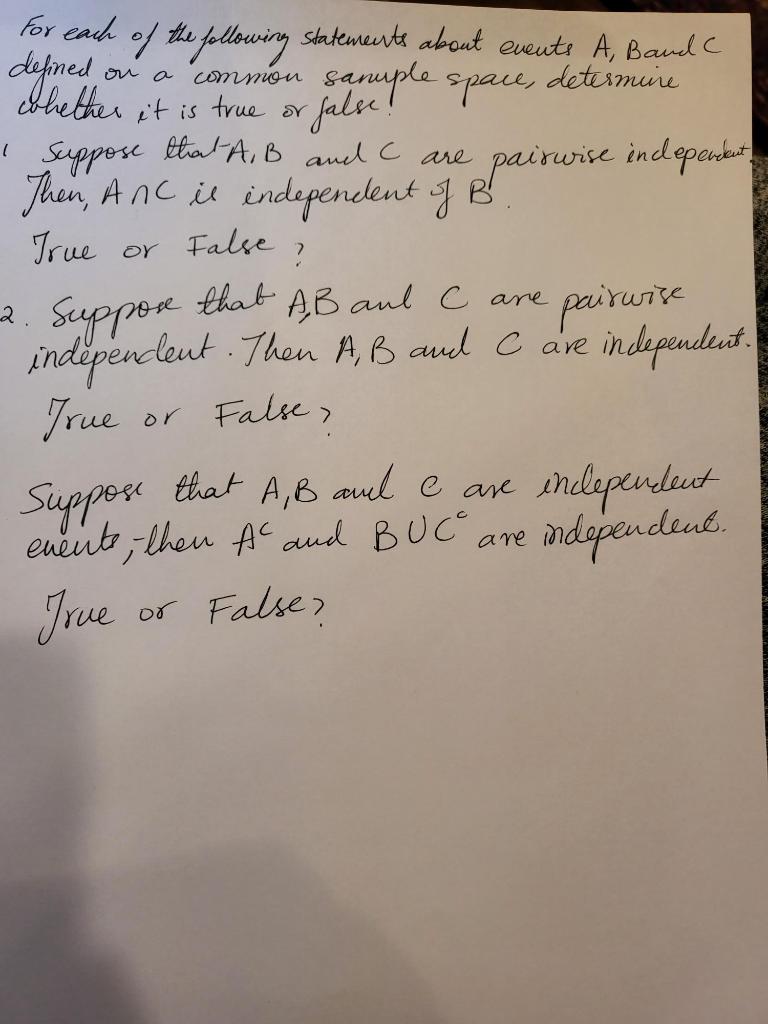 For each of the following statements about events A, B and C
defined on a common sample space, determine
whether it is true or false!
1 Suppose that A, B and C are pairwise independent.
Then, A∩C is independent of B.
True or False?
2. Suppose that A, B and C are pairwise
independent. Then A, B and C are independent.
True or False?
Suppose that A, B and C are independent
events, then Aᶜ and B∪Cᶜ are independent.
True or False?